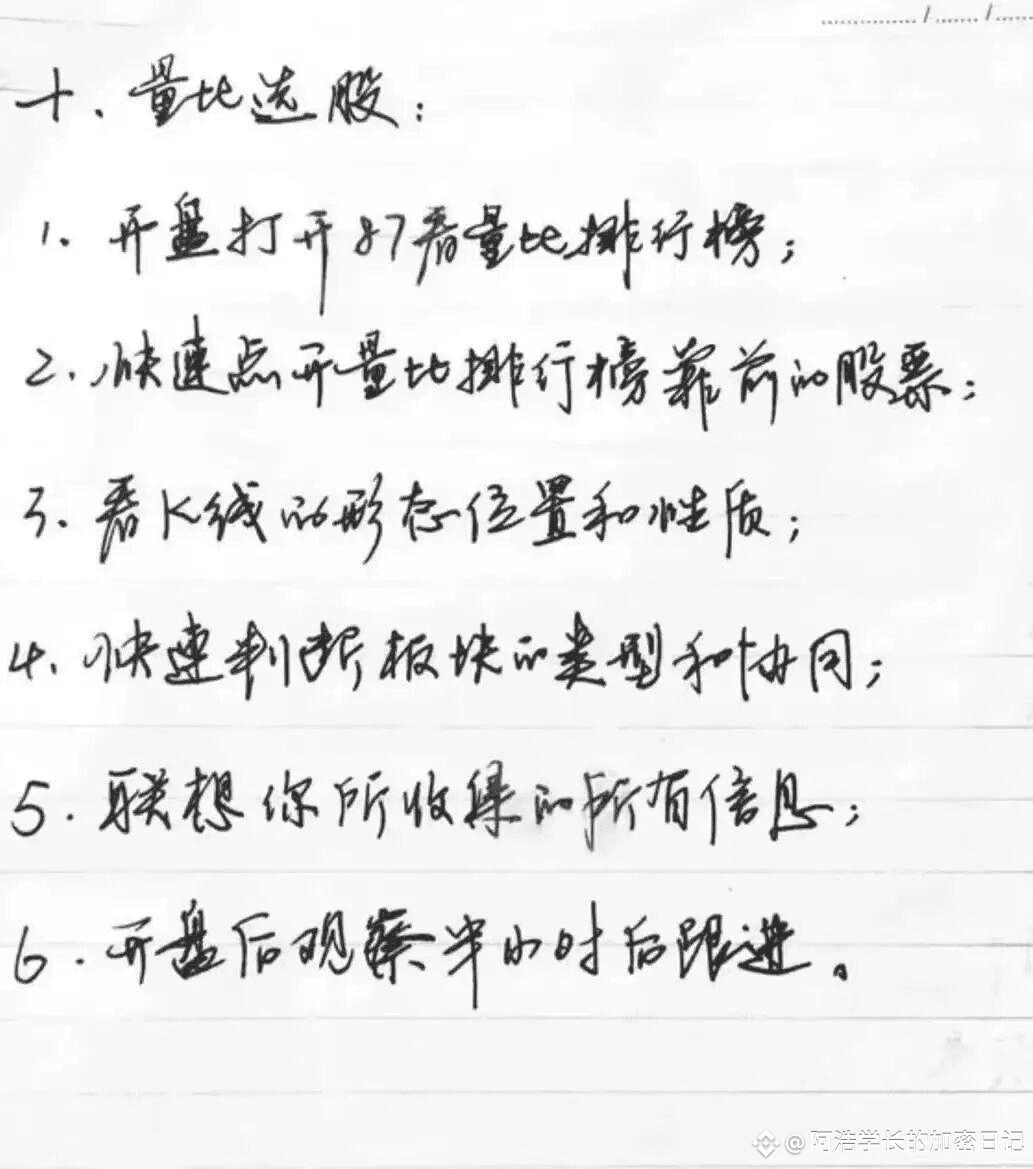 十、量比选股：
1、开盘打开87看量比排行榜；
2、快速点开量比排行榜靠前的股票；
3、看K线的形态位置和性质；
4、快速判断板块的类型和协同；
5、联想你所收集的所有信息；
6、开盘后观察半小时后跟进。
@阿浩学长的加密日记